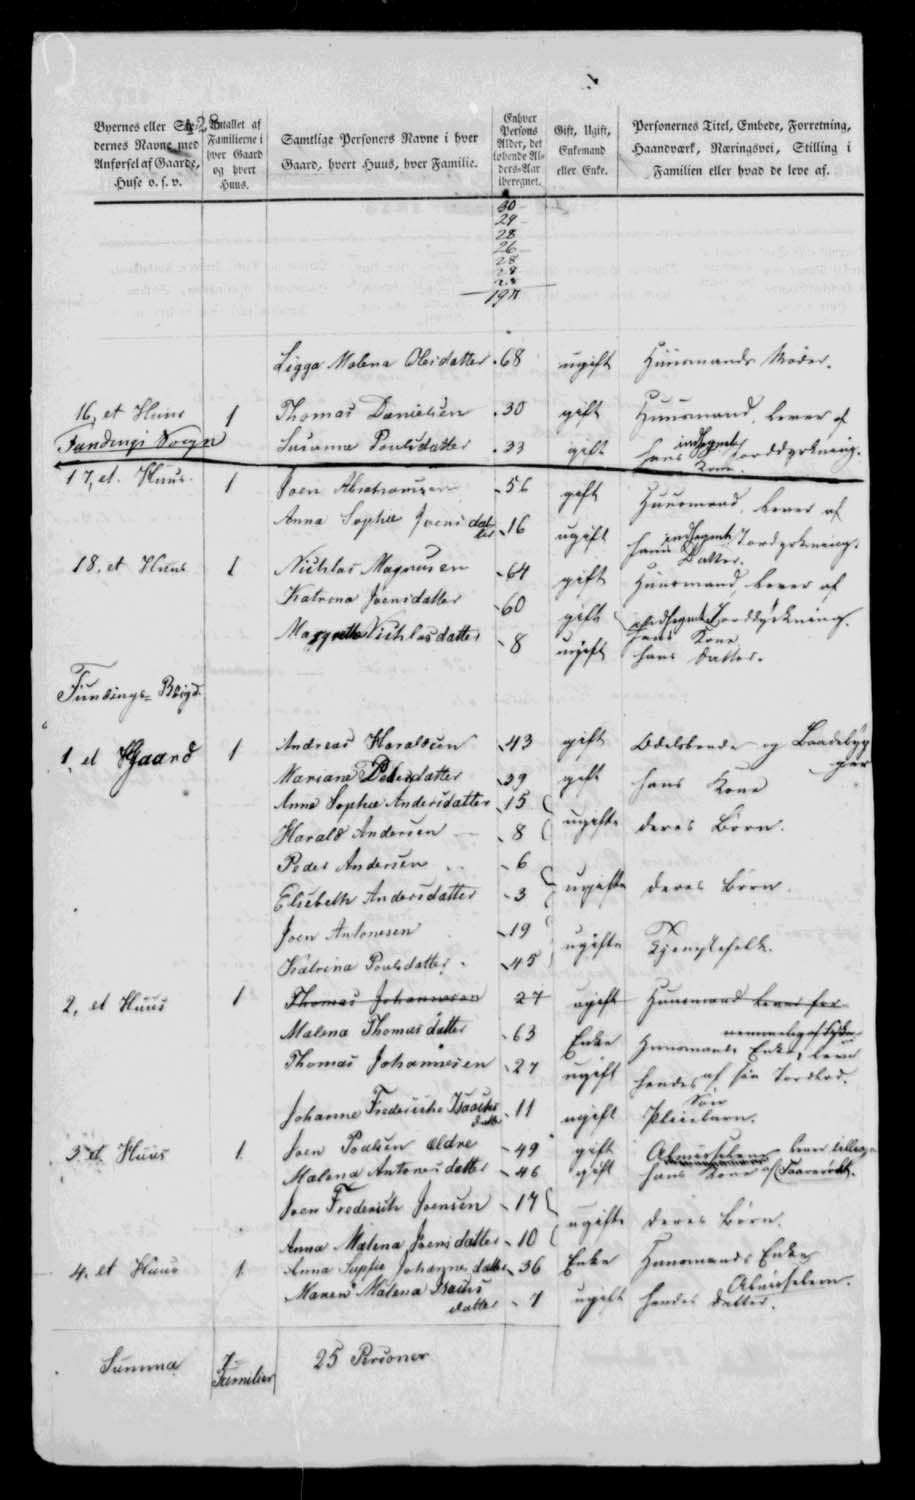 Byernes eller Ste-
dernes Navne med
Anførsel af Gaarde,
Huse o. s. v.
Antallet af
Familierne i
hver Gaard
og hvert
Huus.
Samtlige Personers Navne i hver
Gaard, hvert Huus, hver Familie.
Enhver
Persons
Alder, det
løbende Al-
ders-Aar
iberegnet.
Gift, Ugift,
Enkemand
eller Enke.
Personernes Titel, Embede, Forretning,
Haandværk, Næringsvei, Stilling i
Familien eller hvad de leve af.
30
29
28
26
28
28
28
197
Ligga Malena Olesdatter 68 ugift Huusmands Moder.
16, et Huus 1 Thomas Danielsen 30 gift Huusmand, lever af
Fundings Sogn Susanna Poulsdatter 33 gift hans Kone. indhegnet Jorddyrkning.
17, et Huus 1 Joen Abrahamsen 56 gift Huusmand, lever af
Anna Sophie Joensdatter 16 ugift hans Datter. indhegnet Jordyrkning.
18, et Huus 1 Nichlas Magnusen 64 gift Huusmand, lever af
Katrina Joensdatter 60 gift hans Kone indhegnet Jorddyrkning.
Margretha Nichlasdatter 8 ugift hans Datter.
Fundings-Bøigd.
1, et Gaard 1 Andreas Haraldsen 43 gift Odelsbonde og Baadebyg
ger
Mariane Pedersdatter 39 gift hans Kone
Anna Sophie Andersdatter 15
Harald Andersen 8 ugifte deres Børn.
Peder Andersen 6
Elsebeth Andersdatter 3 ugifte deres Børn.
Joen Antonesen 19
Katrina Poulsdatter 45 ugifte Tjenestefolk.
2, et Huus 1 Thomas Johannesen 27 ugift Huusmand lever for
Malena Thomasdatter 63 Enke Huusmands Enke, lever
Thomas Johannesen 27 ugift hendes Søn af sin Jordlod.
Johanne Frederiche Isachs
datter 11 ugift Pleiebarn.
3, et Huus 1 Joen Poulsen ældre 49 gift Almisselem, lever tillige
Malena Antonesdatter 46 gift hans Kone af
Joen Frederich Joensen 14
Anna Malena Joensdatter 10 ugifte deres Børn.
4, et Huus 1 Anna Sophie Johannesdatter 36 Enke Huusmands Enke
Almisselem.
Maren Malena Isachs
datter 7 ugift hendes Datter.
Summa 7 Familier 25 Personer